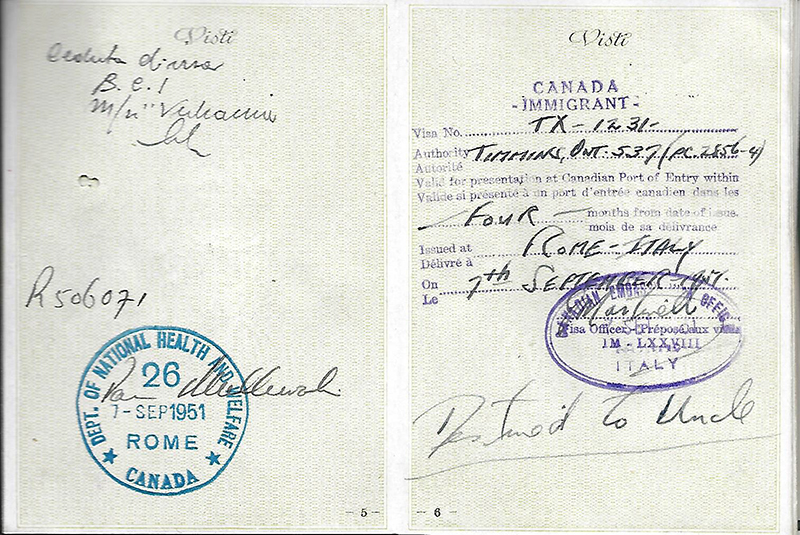 Visti
B.C.I
M/n "Vulcania"
R506071
DEPT. OF NATIONAL HEALTH AND WELFARE
26
7-SEP1951
ROME
CANADA
- 5 -
Visti
CANADA
-IMMIGRANT-
Visa No. TX-1231-
Authority TIMMINS, ONT. 537 (PC.2856-4)
Autorité
Valid for presentation at Canadian Port of Entry within
Valide si présenté à un port d'entrée canadien dans les
FOUR months from date of issue.
mois de sa délivrance
Issued at ROME-ITALY
Délivré à
On 7th SEPTEMBER-1951.
Le
Visa Officer-Préposé aux visas
IM-LXXVIII
ITALY
Destined to Uncle
- 6 -